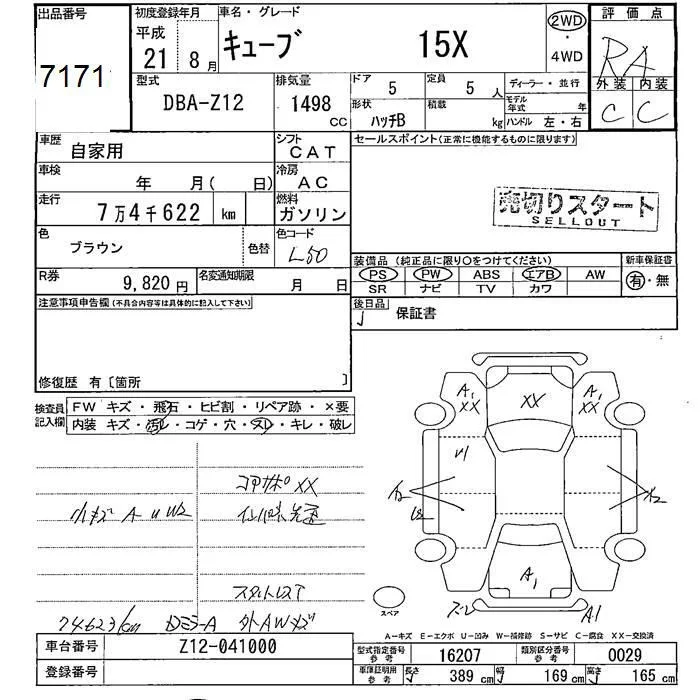 出品番号
7171
初度登録年月
平成
21 8月
車名・グレード
キューブ 15X
2WD
・
4WD
評価点
RA
外装 内装
C C
型式
DBA-Z12
排気量
1498
CC
ドア
5
定員
5人
ディーラー・並行
形状
ハッチB
積載
kg
モデル年式
年
ハンドル 左・右
車歴
自家用
シフト
CAT
車検
年 月(日)
冷房
AC
走行
7万4千622 km
燃料
ガソリン
色
ブラウン
色替
色コード
L50
R券
9,820円
名変通知期限
月 日
セールスポイント(正常に機能するものに限ります)
売切りスタート
SELLOUT
装備品(純正品に限り○をつけてください)
PS PW ABS エアB AW
SR ナビ TV カワ
新車保証書
有・無
後日品
保証書
注意事項申告欄(不具合内容等は具体的に記入して下さい)
修復歴 有〔箇所 〕
検査員記入欄
FW キズ・飛石・ヒビ割・リペア跡・×要
内装 キズ・汚レ・コゲ・穴・スレ・キレ・破レ
コアサポ XX
小キズ A U W2
74623km DミラーA 外AWキズ
A1 XX
XX
A1 XX
A2
A1
スレ
A1
スペア
A-キズ E-エクボ U-凹み W-補修跡 S-サビ C-腐食 XX-交換済
車台番号
Z12-041000
登録番号
型式指定番号
参考
16207
類別区分番号
参考
0029
車庫証明用
参考
長さ
389cm
幅
169cm
高さ
165cm